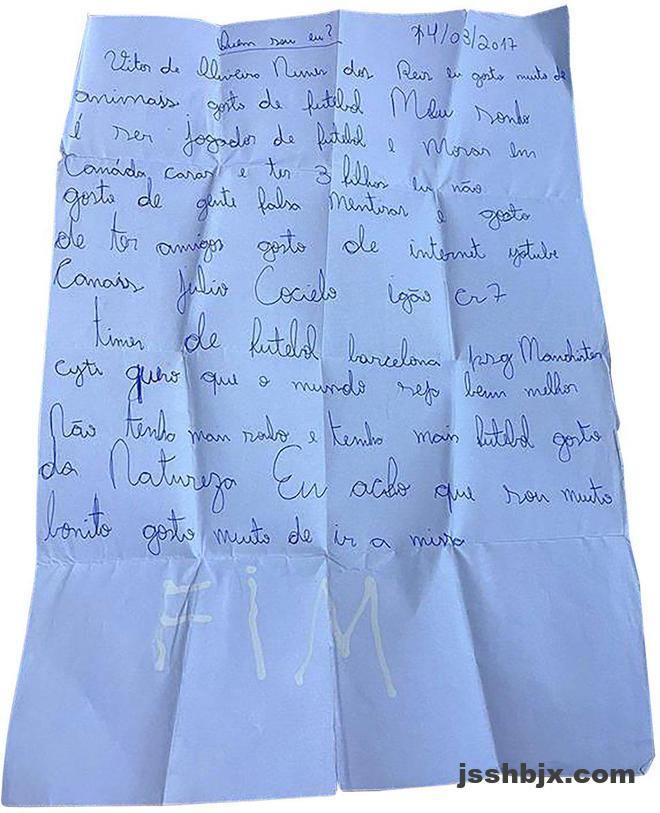 Quem sou eu? 14/03/2017
Vitor de Oliveira Nunes dos Reis eu gosto muito de
animais gosto de futebol Meu sonho
é ser jogador de futebol e Morar em
Canáda casar e ter 3 filhos eu não
gosto de gente falsa Mentiras e gosto
de ter amigos gosto de internet yotube
Canais Julio Cocielo igão cr7
times de futebol barcelona psg Manchister
cyti quero que o mundo seja bem melhor
Não tenha mas robo e tenha mais futebol gosto
da Natureza Eu acho que sou muito
bonito gosto muito de ir a missa
FIM
jsshbjx.com